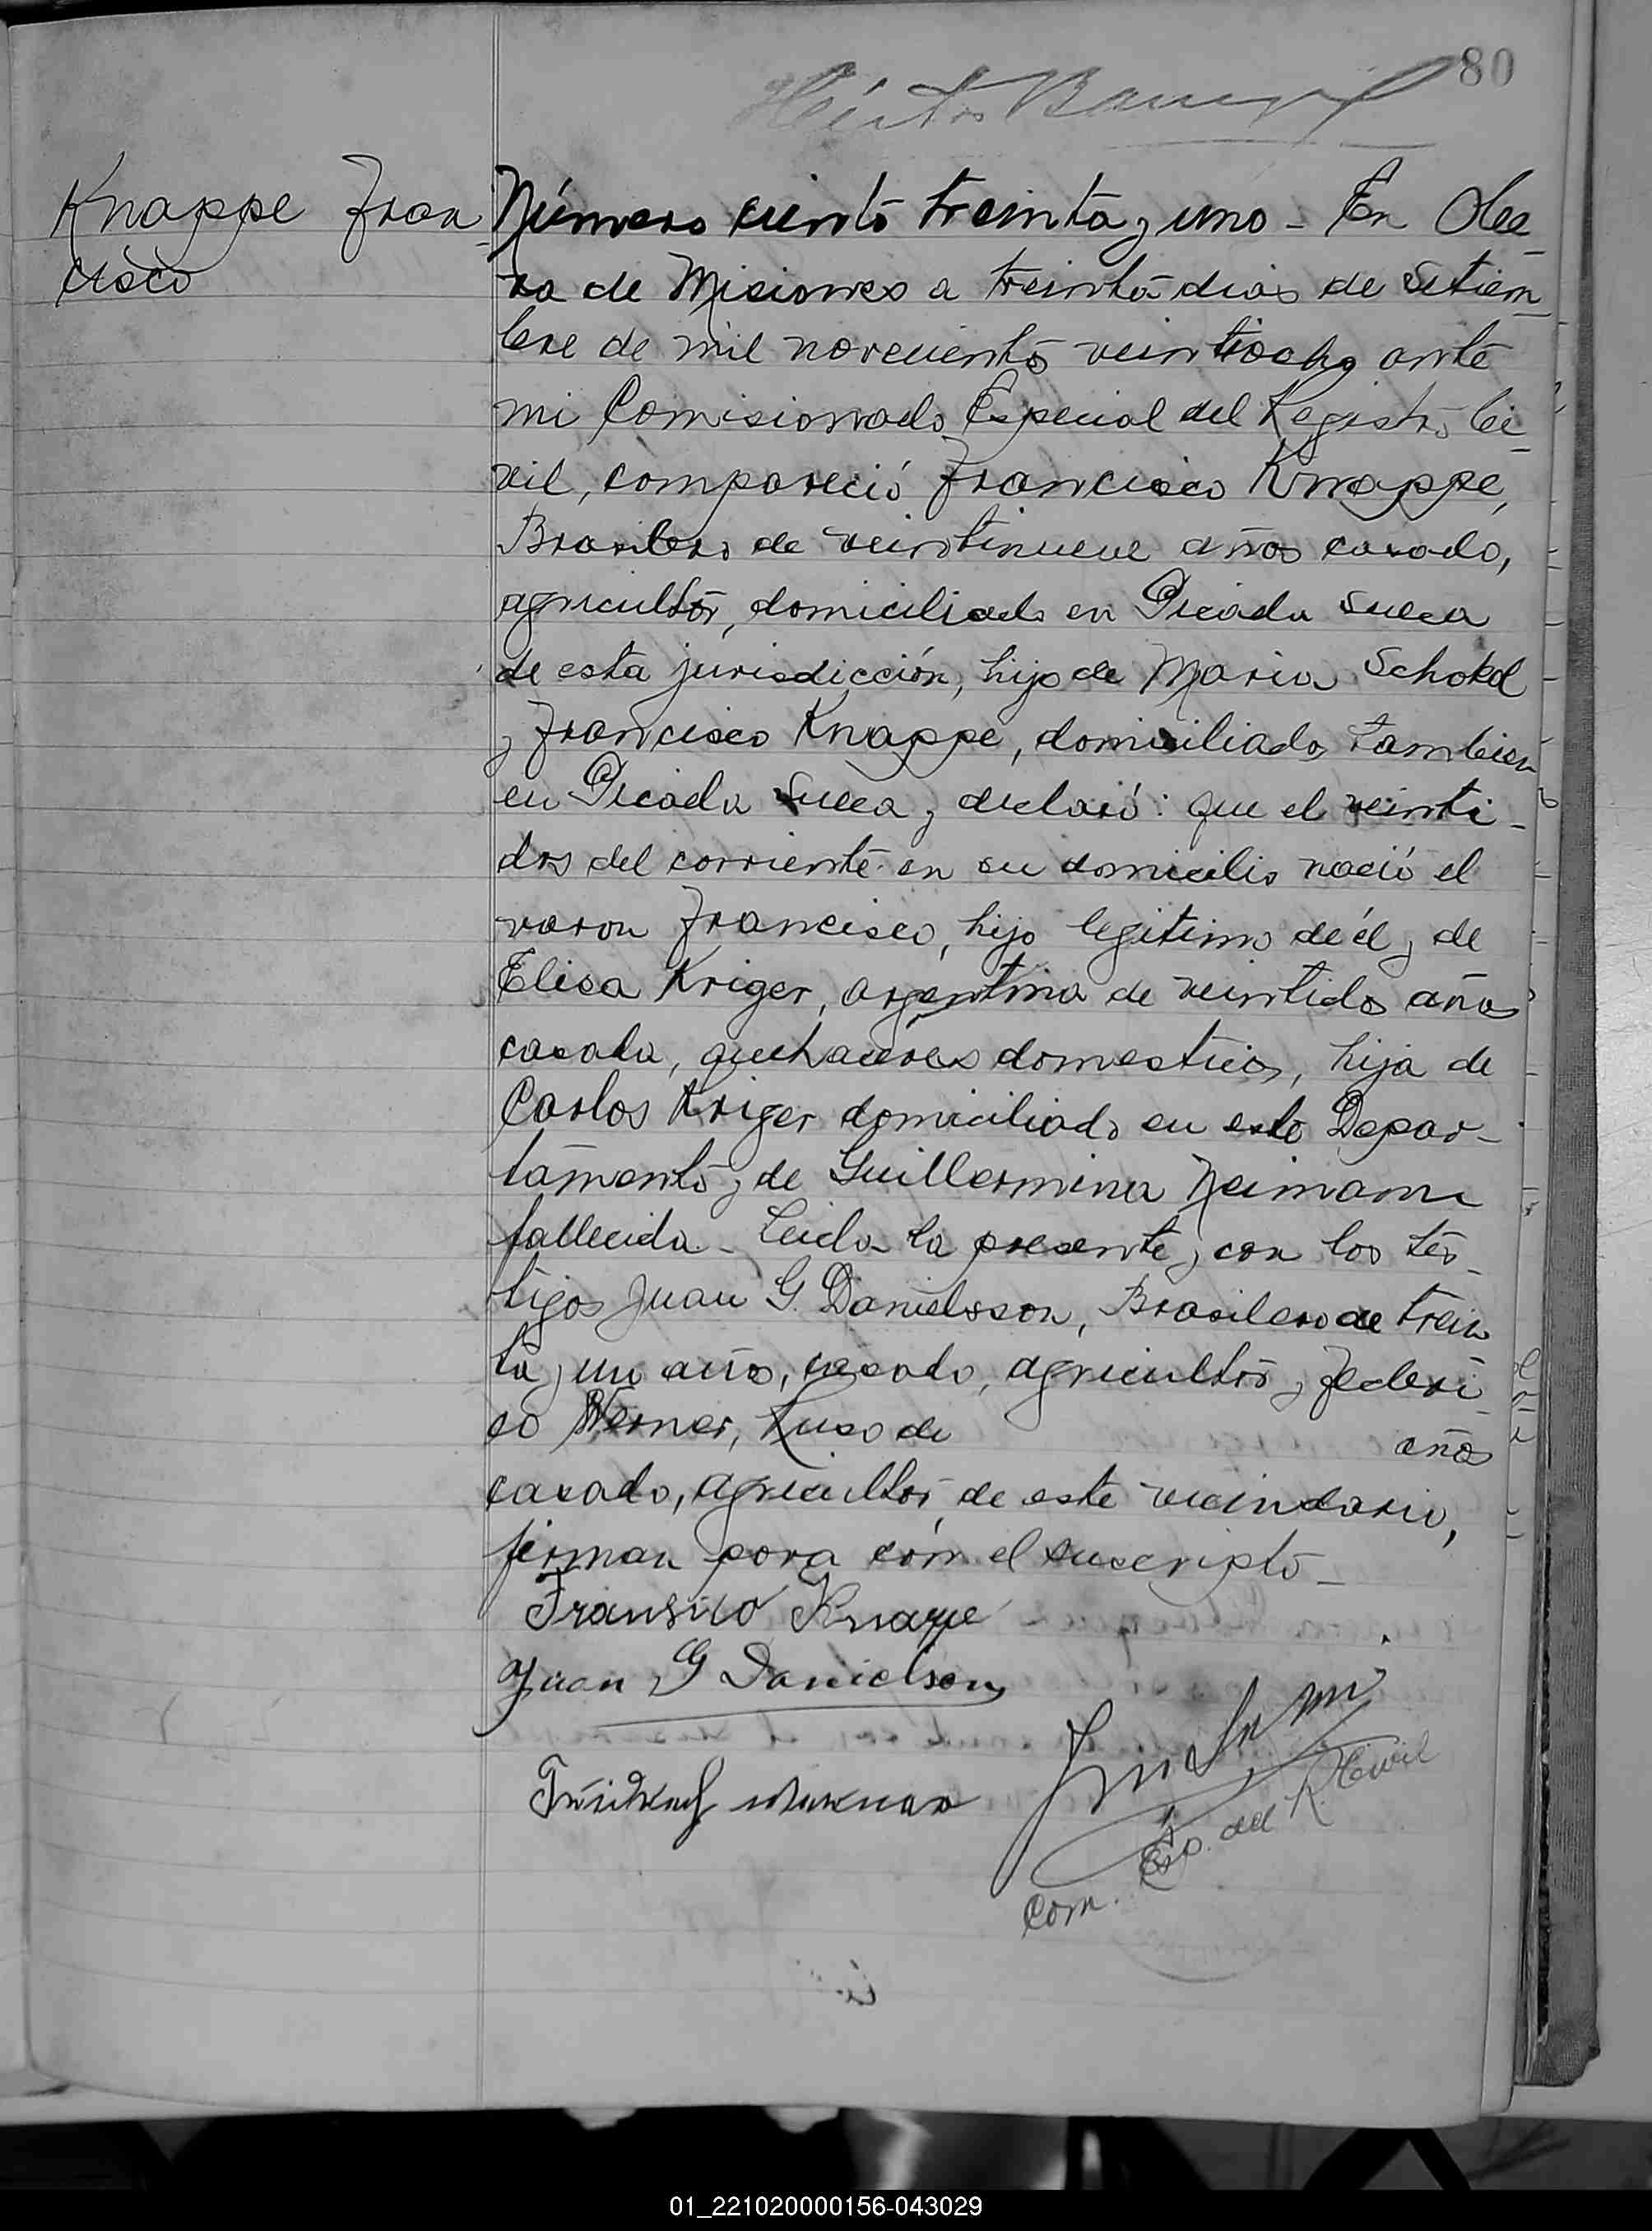 80
Knappe Fran
cisco
Número ciento treinta y uno - En Ole-
ra de Misiones a treinta dias de Setiem-
bre de mil novecientos veintiocho ante
mi Comisionado Especial del Registro Ci-
vil, compareció Francisco Knappe,
Brasilero de veintinueve años casado,
agricultor, domiciliado en Picada Sueca
de esta jurisdicción, hijo de Maria Schokol
y Francisco Knappe, domiciliados tambien
en Picada Sueca y declaró: que el veinti-
dos del corriente en su domicilio nació el
varon Francisco, hijo legitimo de él y de
Elisa Kriger, argentina de veintidos años
casada, quehaceres domesticos, hija de
Carlos Kriger domiciliado en este Depar-
tamento y de Guillermina Neimann
fallecida - Leida la presente y con los tes-
tigos Juan G. Danielsson, Brasilero de trein
ta y un años, casado, agricultor y Federi-
co Werner, Ruso de años
casado, agricultor de este vecindario,
firman para con el suscripto -
Fransico Knappe
Juan G Danielson
Com. Esp. del R. Civil
01_221020000156-043029